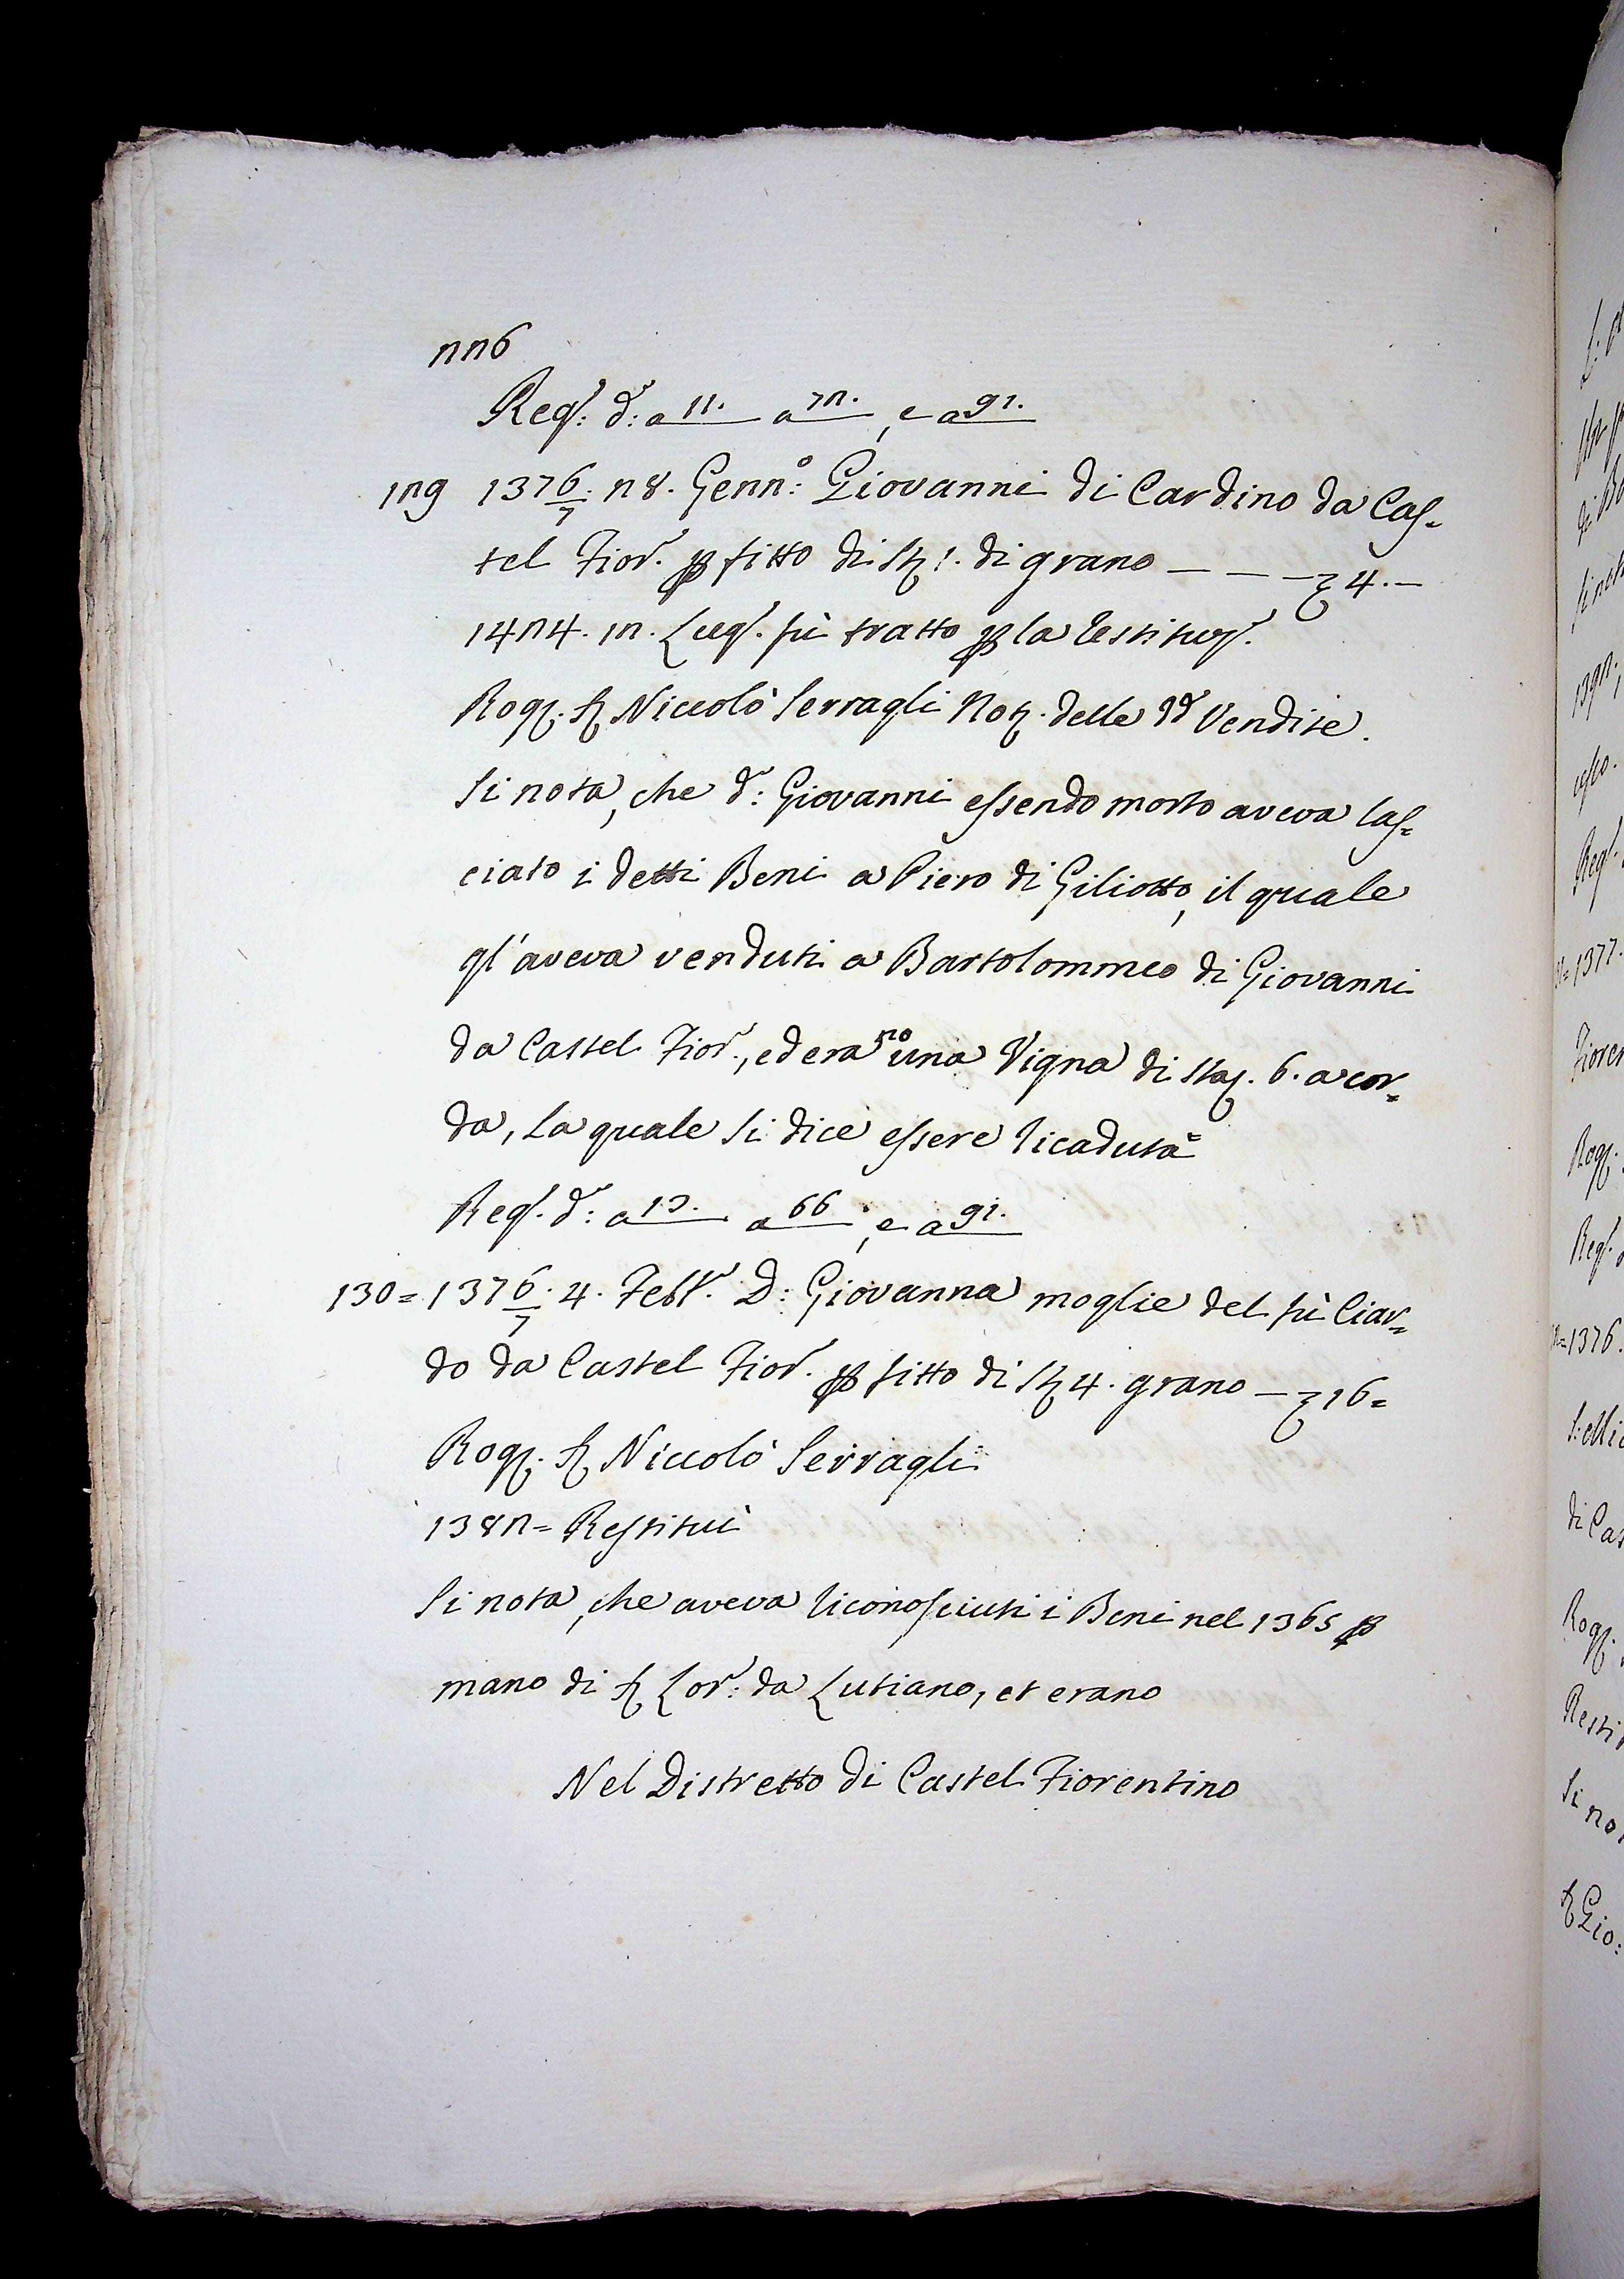 226
Reg: d: a 11. a 72. , e a 91.
129 1376/7. 28. Genn:o Giovanni di Cardino da Cas=
tel Fior. p fitto di St 1. di grano — — — 4. —
1424. 12. Lug. fù tratto p la restituz.
Rog. S Niccolò Serragli Not. delle dd Vendite.
Si nota, che d: Giovanni essendo morto aveva las=
ciato i detti Beni a Piero di Giliotto, il quale
gl'aveva venduti a Bartolommeo di Giovanni
da Castel Fior., ed erano una Vigna di staj. 6. a cor=
da, La quale si dice essere ricaduta=
Reg. d: a 13. a 66 , e a 91.
130= 1376/7. 4. Febr. D: Giovanna moglie del fù Ciar=
do da Castel Fior. p fitto di St 4. grano — 16=
Rog. S Niccolò Serragli
1382= Restituì
Si nota, che aveva riconosciuti i Beni nel 1365 p
mano di S Lor: da Lutiano, et erano
Nel Distretto di Castel Fiorentino